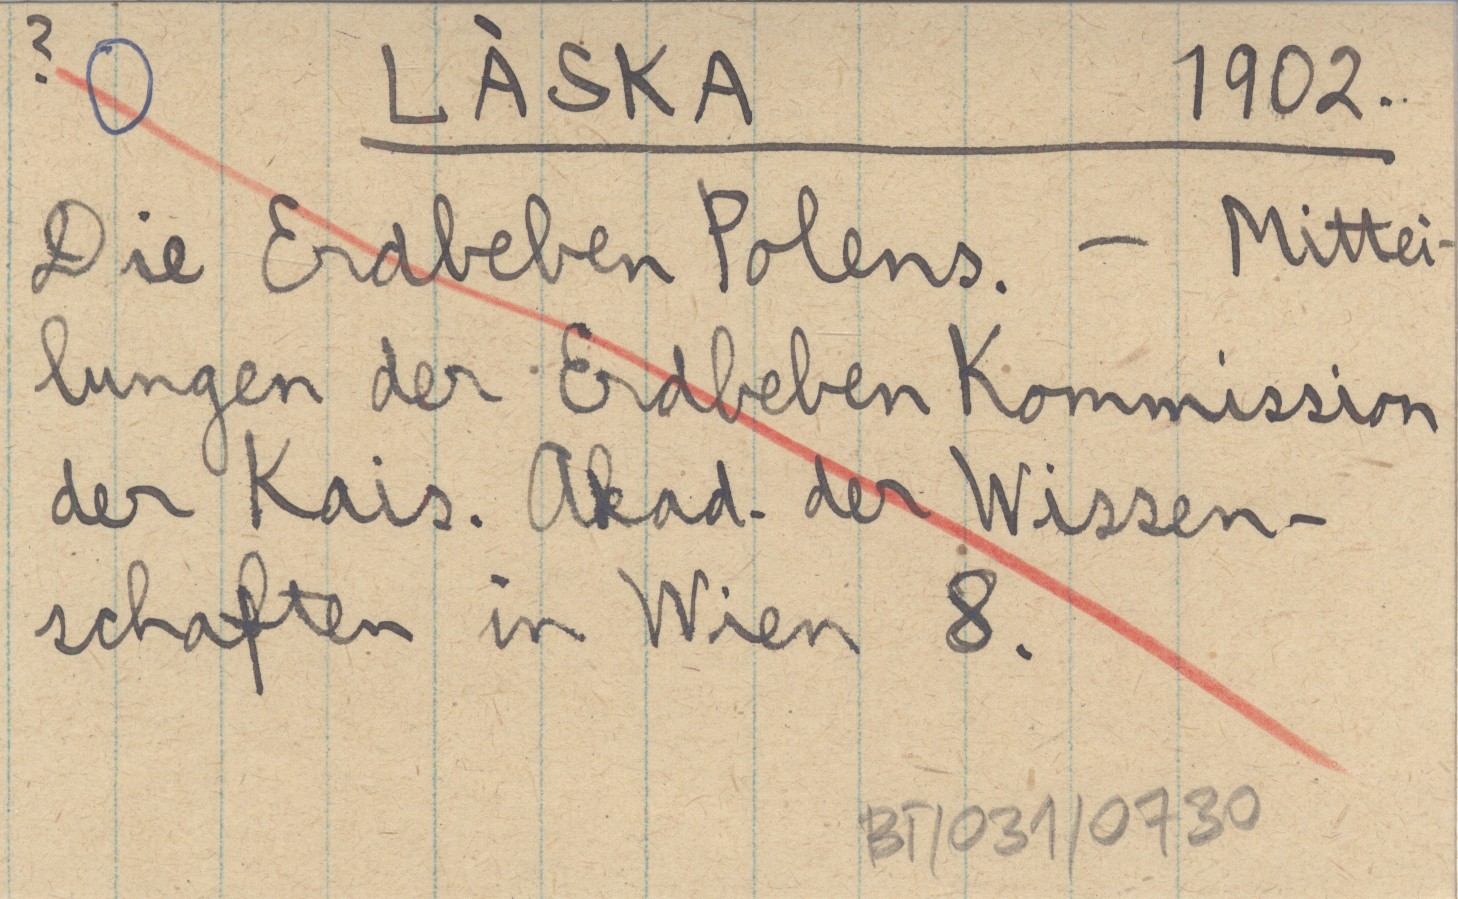 ? LÀSKA 1902.
Die Erdbeben Polens. — Mittei-
lungen der Erdbeben Kommission
der Kais. Akad. der Wissen-
schaften in Wien 8.
BT/031/0730